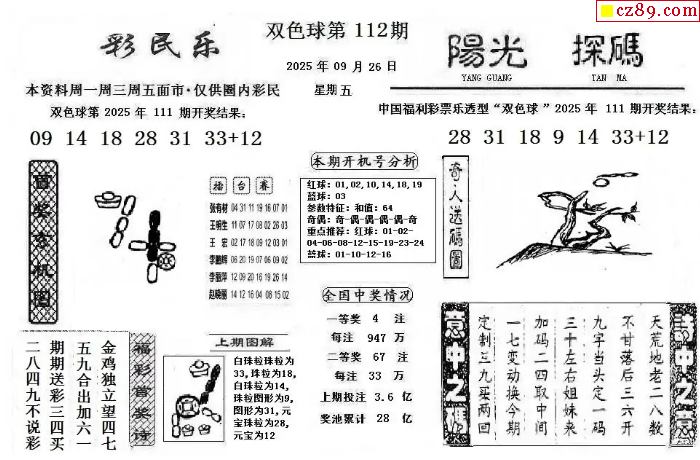 cz89.com
彩民乐
双色球第 112期
2025年09月26日
星期五
陽光 探碼
YANG GUANG TAN MA
本资料周一周三周五面市·仅供圈内彩民
双色球第 2025 年 111 期开奖结果:
09 14 18 28 31 33+12
中国福利彩票乐透型“双色球”2025 年 111 期开奖结果:
28 31 18 9 14 33+12
首奖玄机图
擂台赛
张有树 04 31 11 19 16 07 01
王明生 11 07 17 08 02 26 03
王宏 02 17 18 09 12 03 01
李鹏辉 06 20 19 07 06 09 02
李丽萍 12 09 20 16 19 26 14
赵晓丽 14 12 16 04 08 15 02
本期开机号分析
红球:01,02,10,14,18,19
蓝球:03
参数特征:和值:64
奇偶:奇-偶-偶-偶-偶-奇
重点推荐:红球:01-02-
04-06-08-12-15-19-23-24
蓝球:01-10-12-16
奇人送碼圖
全国中奖情况
一等奖 4 注
每注 947 万
二等奖 67 注
每注 33 万
上期投注 3.6 亿
奖池累计 28 亿
福彩首奖诗
金鸡独立望四七
五九合出加六一
期期送彩三四买
二八四九不说彩
上期图解
白珠粒珠粒为
33,珠粒为18,
白珠粒为14,
珠粒图形为9,
图形为31,元
宝珠粒为28,
元宝为12
天荒地老二八数
不甘落后三六开
九字当头定一码
三十左右姐妹来
加码二四取中间
一七变动换今期
定制三九买两回